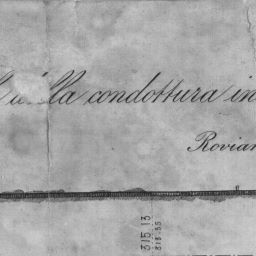 della condottura in
Rovian
315.13
315.55